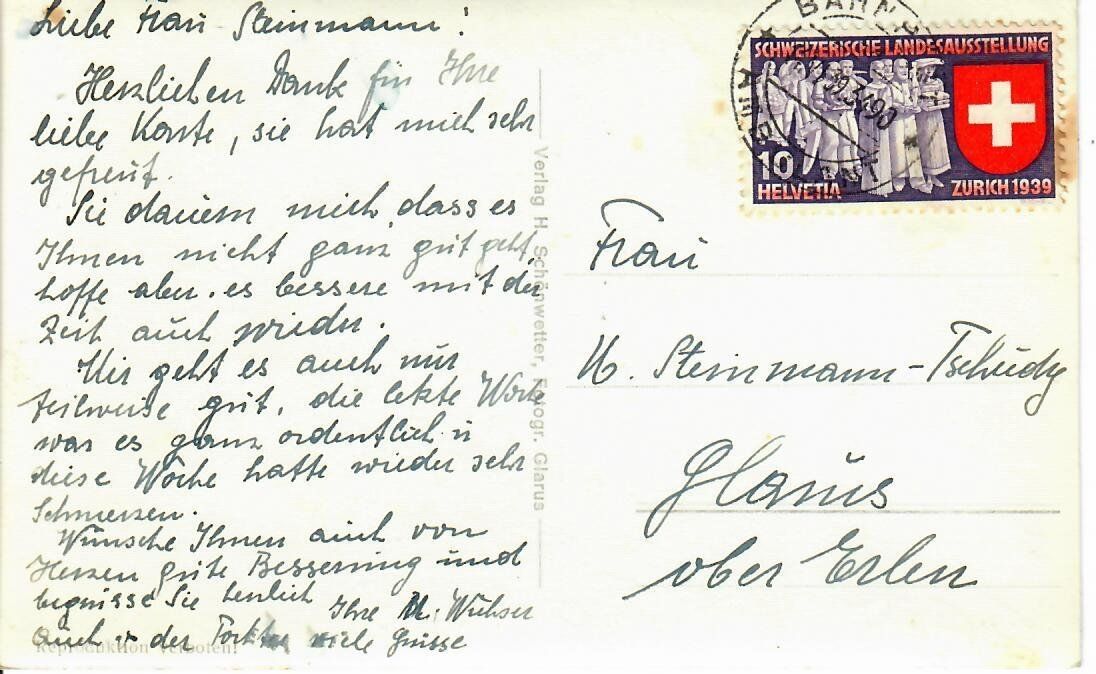 Liebe Frau Steinmann!
Herzlichen Dank für Ihre
liebe Karte, sie hat mich sehr
gefreut.
Sie dauern mich, dass es
Ihnen nicht ganz gut geht,
hoffe aber, es bessere mit der
Zeit auch wieder.
Mir geht es auch nur
teilweise gut, die letzte Woche
was es ganz ordentlich u
diese Woche hatte wieder sehr
Schmerzen.
Wünsche Ihnen auch von
Herzen gute Besserung und
begrüsse Sie herzlich
Ihre M.
Auch der viele Grüsse
Reproduktion verboten!
Verlag H. Schönwetter, Fotogr. Glarus
SCHWEIZERISCHE LANDESAUSSTELLUNG
10
HELVETIA
ZURICH 1939
Frau
M. Steinmann-Tschudy
Glarus
ober Erlen